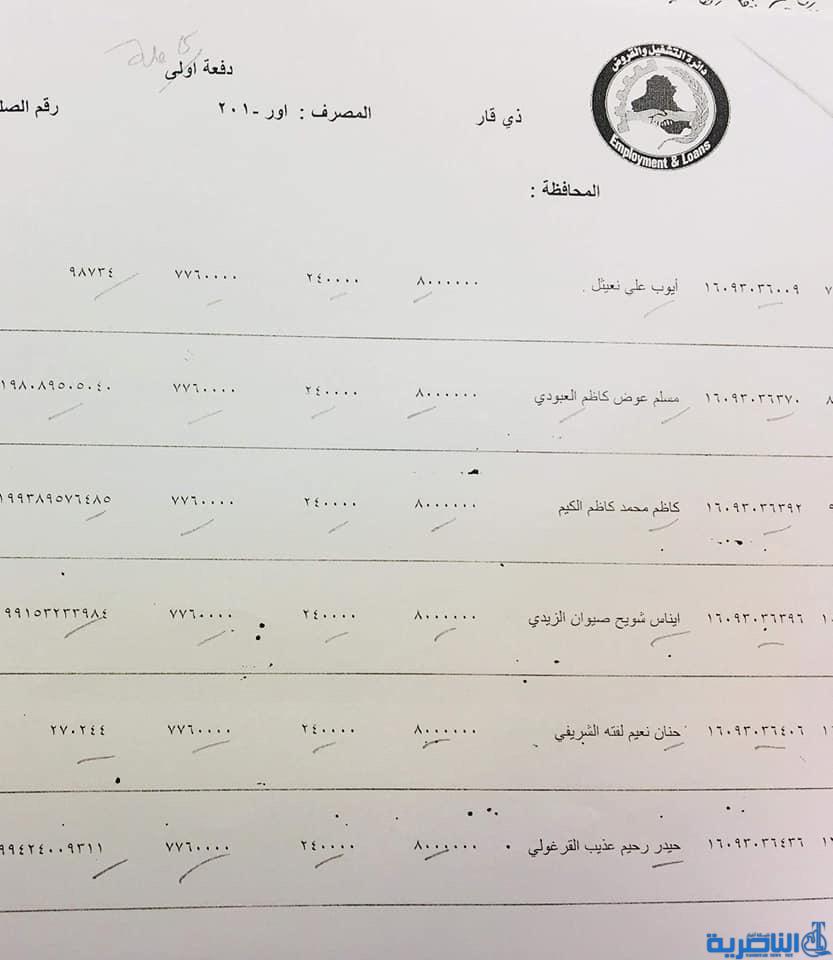 دفعة اولى
دائرة التشغيل والقروض
Employment & Loans
ذي قار
المصرف : اور -٢٠١
رقم الصل
المحافظة :
٧ ١٦٠٩٣٠٣٦٠٠٩ أيوب علي نعيثل . ٨٠٠٠٠٠٠ ٢٤٠٠٠٠ ٧٧٦٠٠٠٠ ٩٨٧٣٤
٨ ١٦٠٩٣٠٣٦٣٧٠ مسلم عوض كاظم العبودي ٨٠٠٠٠٠٠ ٢٤٠٠٠٠ ٧٧٦٠٠٠٠ ١٩٨٠٨٩٥٠٥٠٤٠
٩ ١٦٠٩٣٠٣٦٣٩٢ كاظم محمد كاظم الكيم ٨٠٠٠٠٠٠ ٢٤٠٠٠٠ ٧٧٦٠٠٠٠ ١٩٩٣٨٩٥٧٦٤٨٥
١٠ ١٦٠٩٣٠٣٦٣٩٦ ايناس شويح صيوان الزيدي ٨٠٠٠٠٠٠ ٢٤٠٠٠٠ ٧٧٦٠٠٠٠ ٩٩١٥٣٢٣٣٩٨٤
١ ١٦٠٩٣٠٣٦٤٠٦ حنان نعيم لفته الشريفي ٨٠٠٠٠٠٠ ٢٤٠٠٠٠ ٧٧٦٠٠٠٠ ٢٧٠٢٤٤
١٢ ١٦٠٩٣٠٣٦٤٣٦ حيدر رحيم عذيب القرغولي ٨٠٠٠٠٠٠ ٢٤٠٠٠٠ ٧٧٦٠٠٠٠ ٩٩٤٢٤٠٠٩٣١١
شبكة أخبار
الناصرية